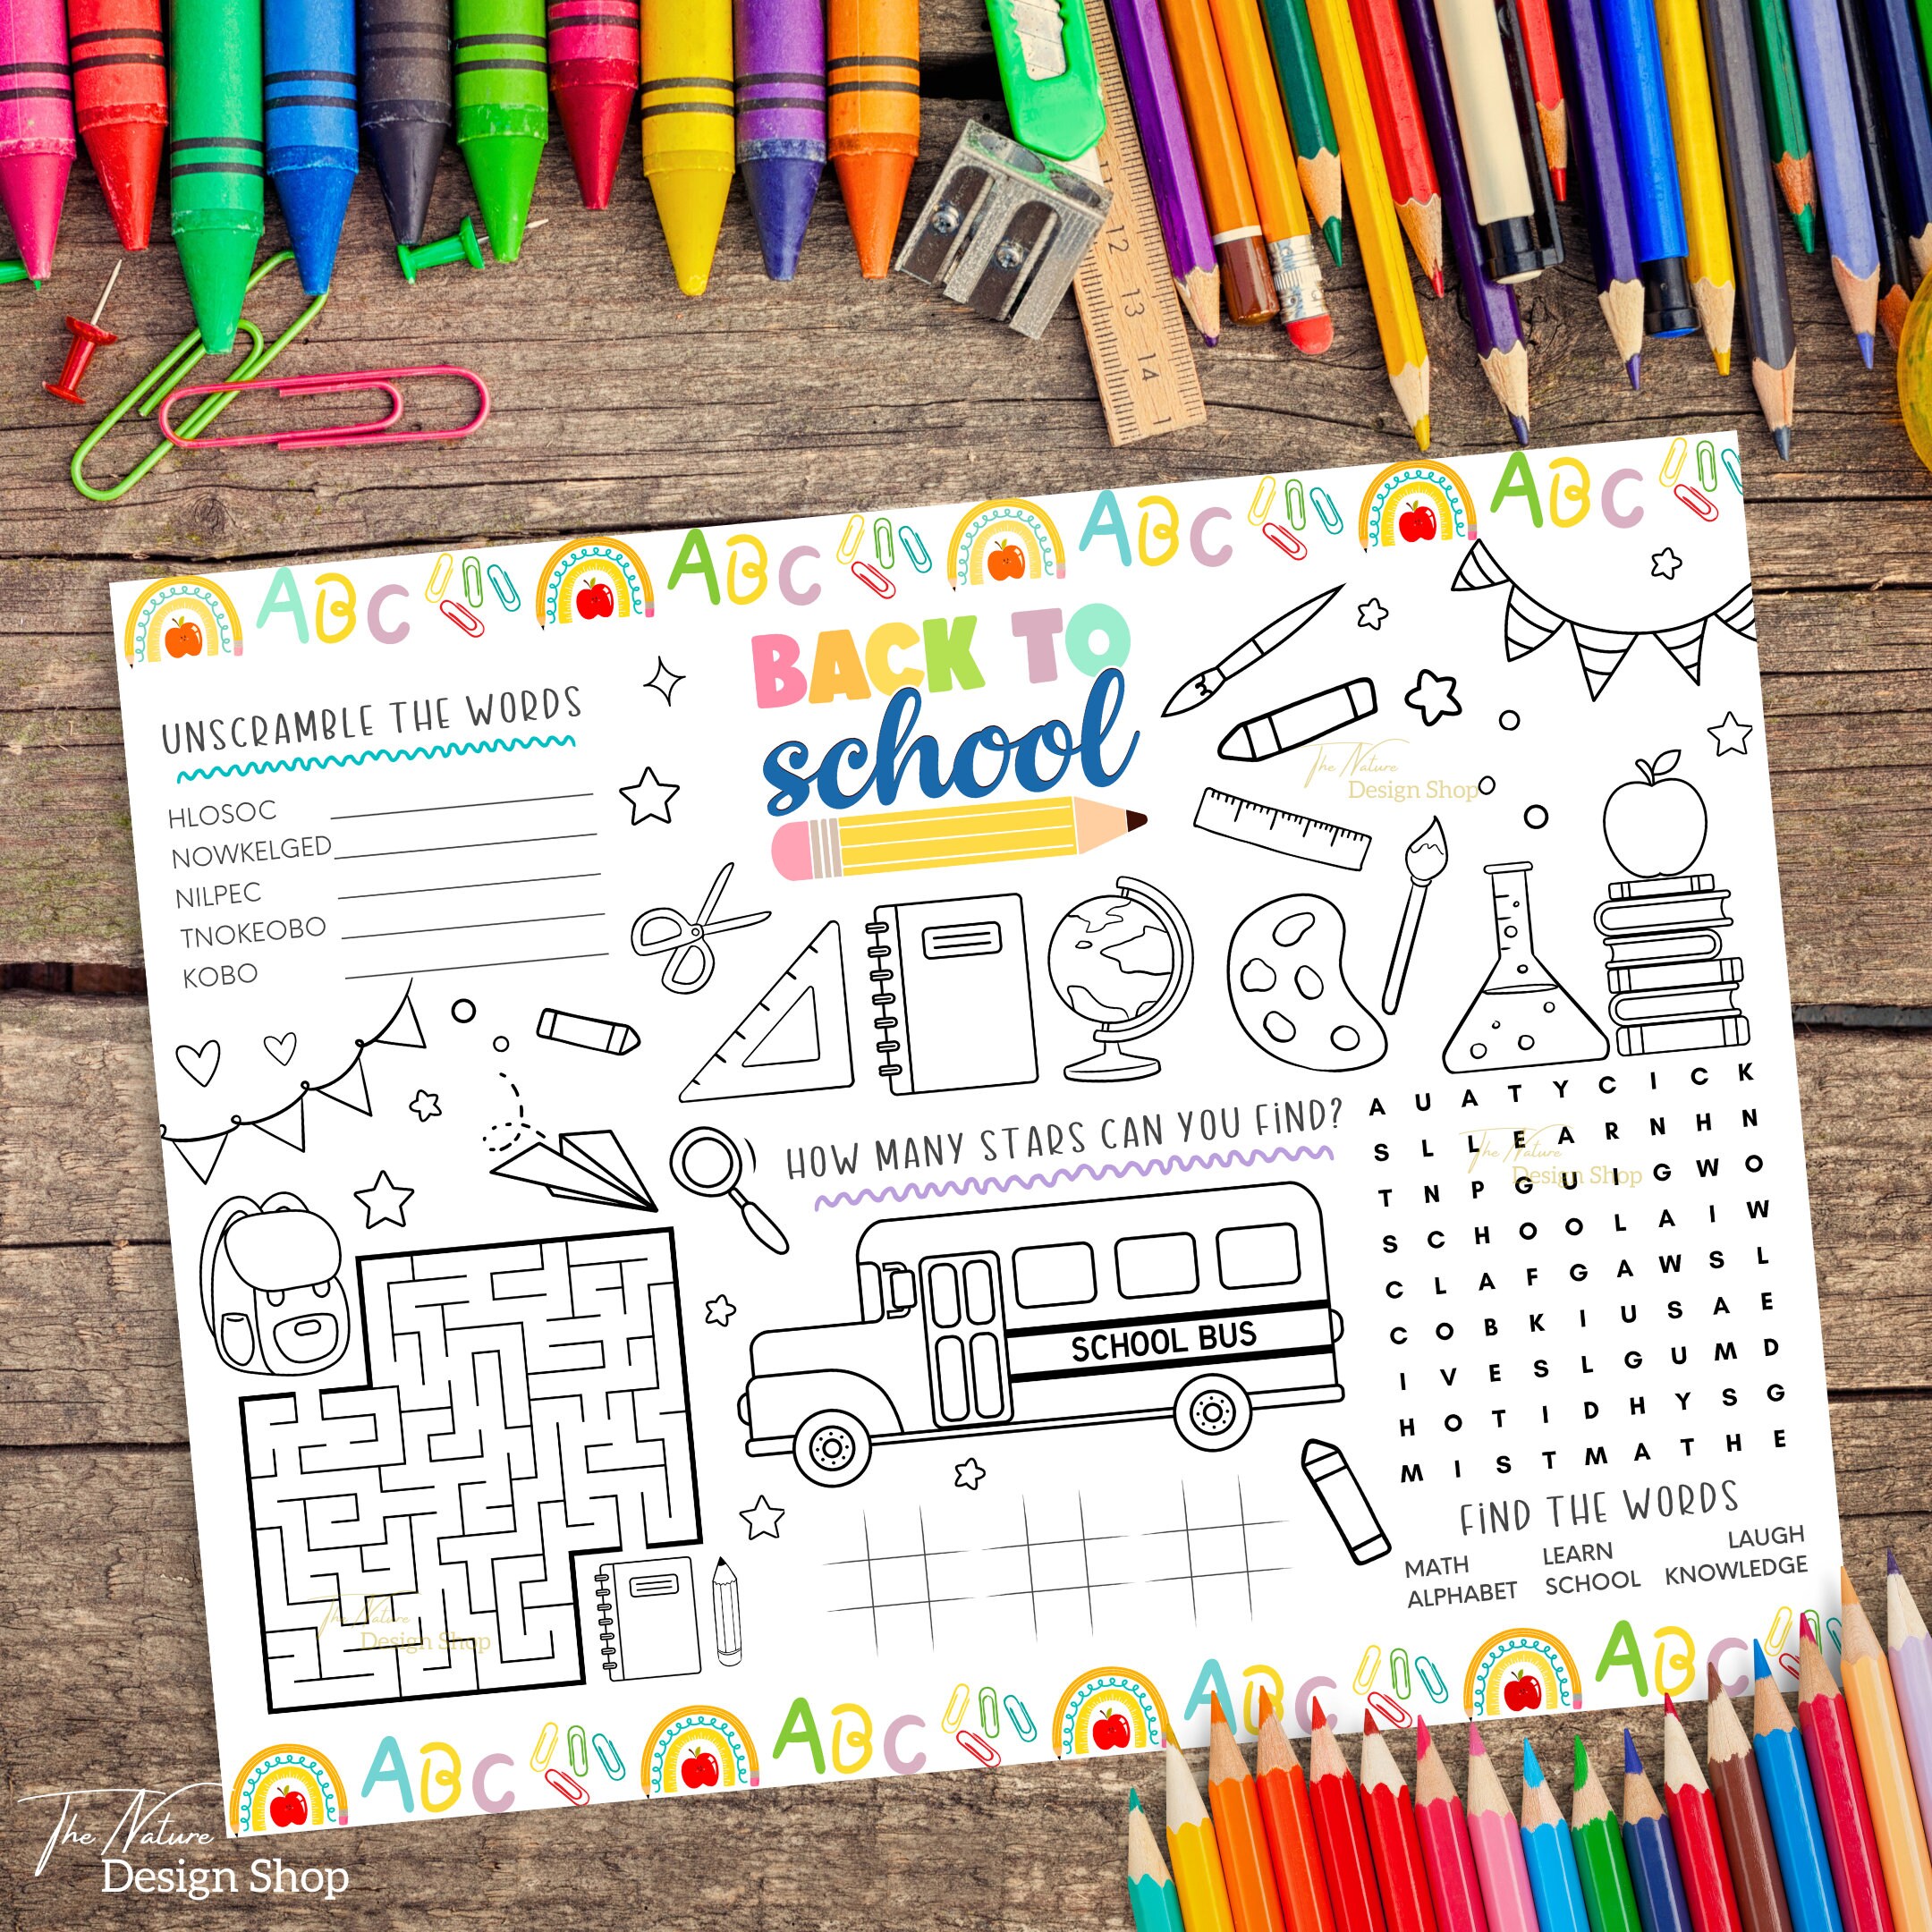 11
12
13
14
1
ABC
ABC
ABC
ABC
BACK TO
school
UNSCRAMBLE THE WORDS
HLOSOC
NOWKELGED
NILPEC
TNOKEOBO
KOBO
The Nature
Design Shop
HOW MANY STARS CAN YOU FIND?
SCHOOL BUS
A U A T Y C I C K
S L L E A R N H N
T N P G U I G W O
S C H O O L A I W
C L A F G A W S L
C O B K I U S A E
I V E S L G U M D
H O T I D H Y S G
M I S T M A T H E
The Nature
Design Shop
FIND THE WORDS
MATH LEARN LAUGH
ALPHABET SCHOOL KNOWLEDGE
The Nature
Design Shop
ABC
ABC
ABC
ABC
The Nature
Design Shop